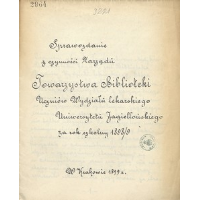 2064
3291
Sprawozdanie
z czynności Zarządu
Towarzystwa Biblioteki
Uczniów Wydziału lekarskiego
Uniwersytetu Jagiellońskiego
za rok szkolny 1898/9
W Krakowie 1899 r.